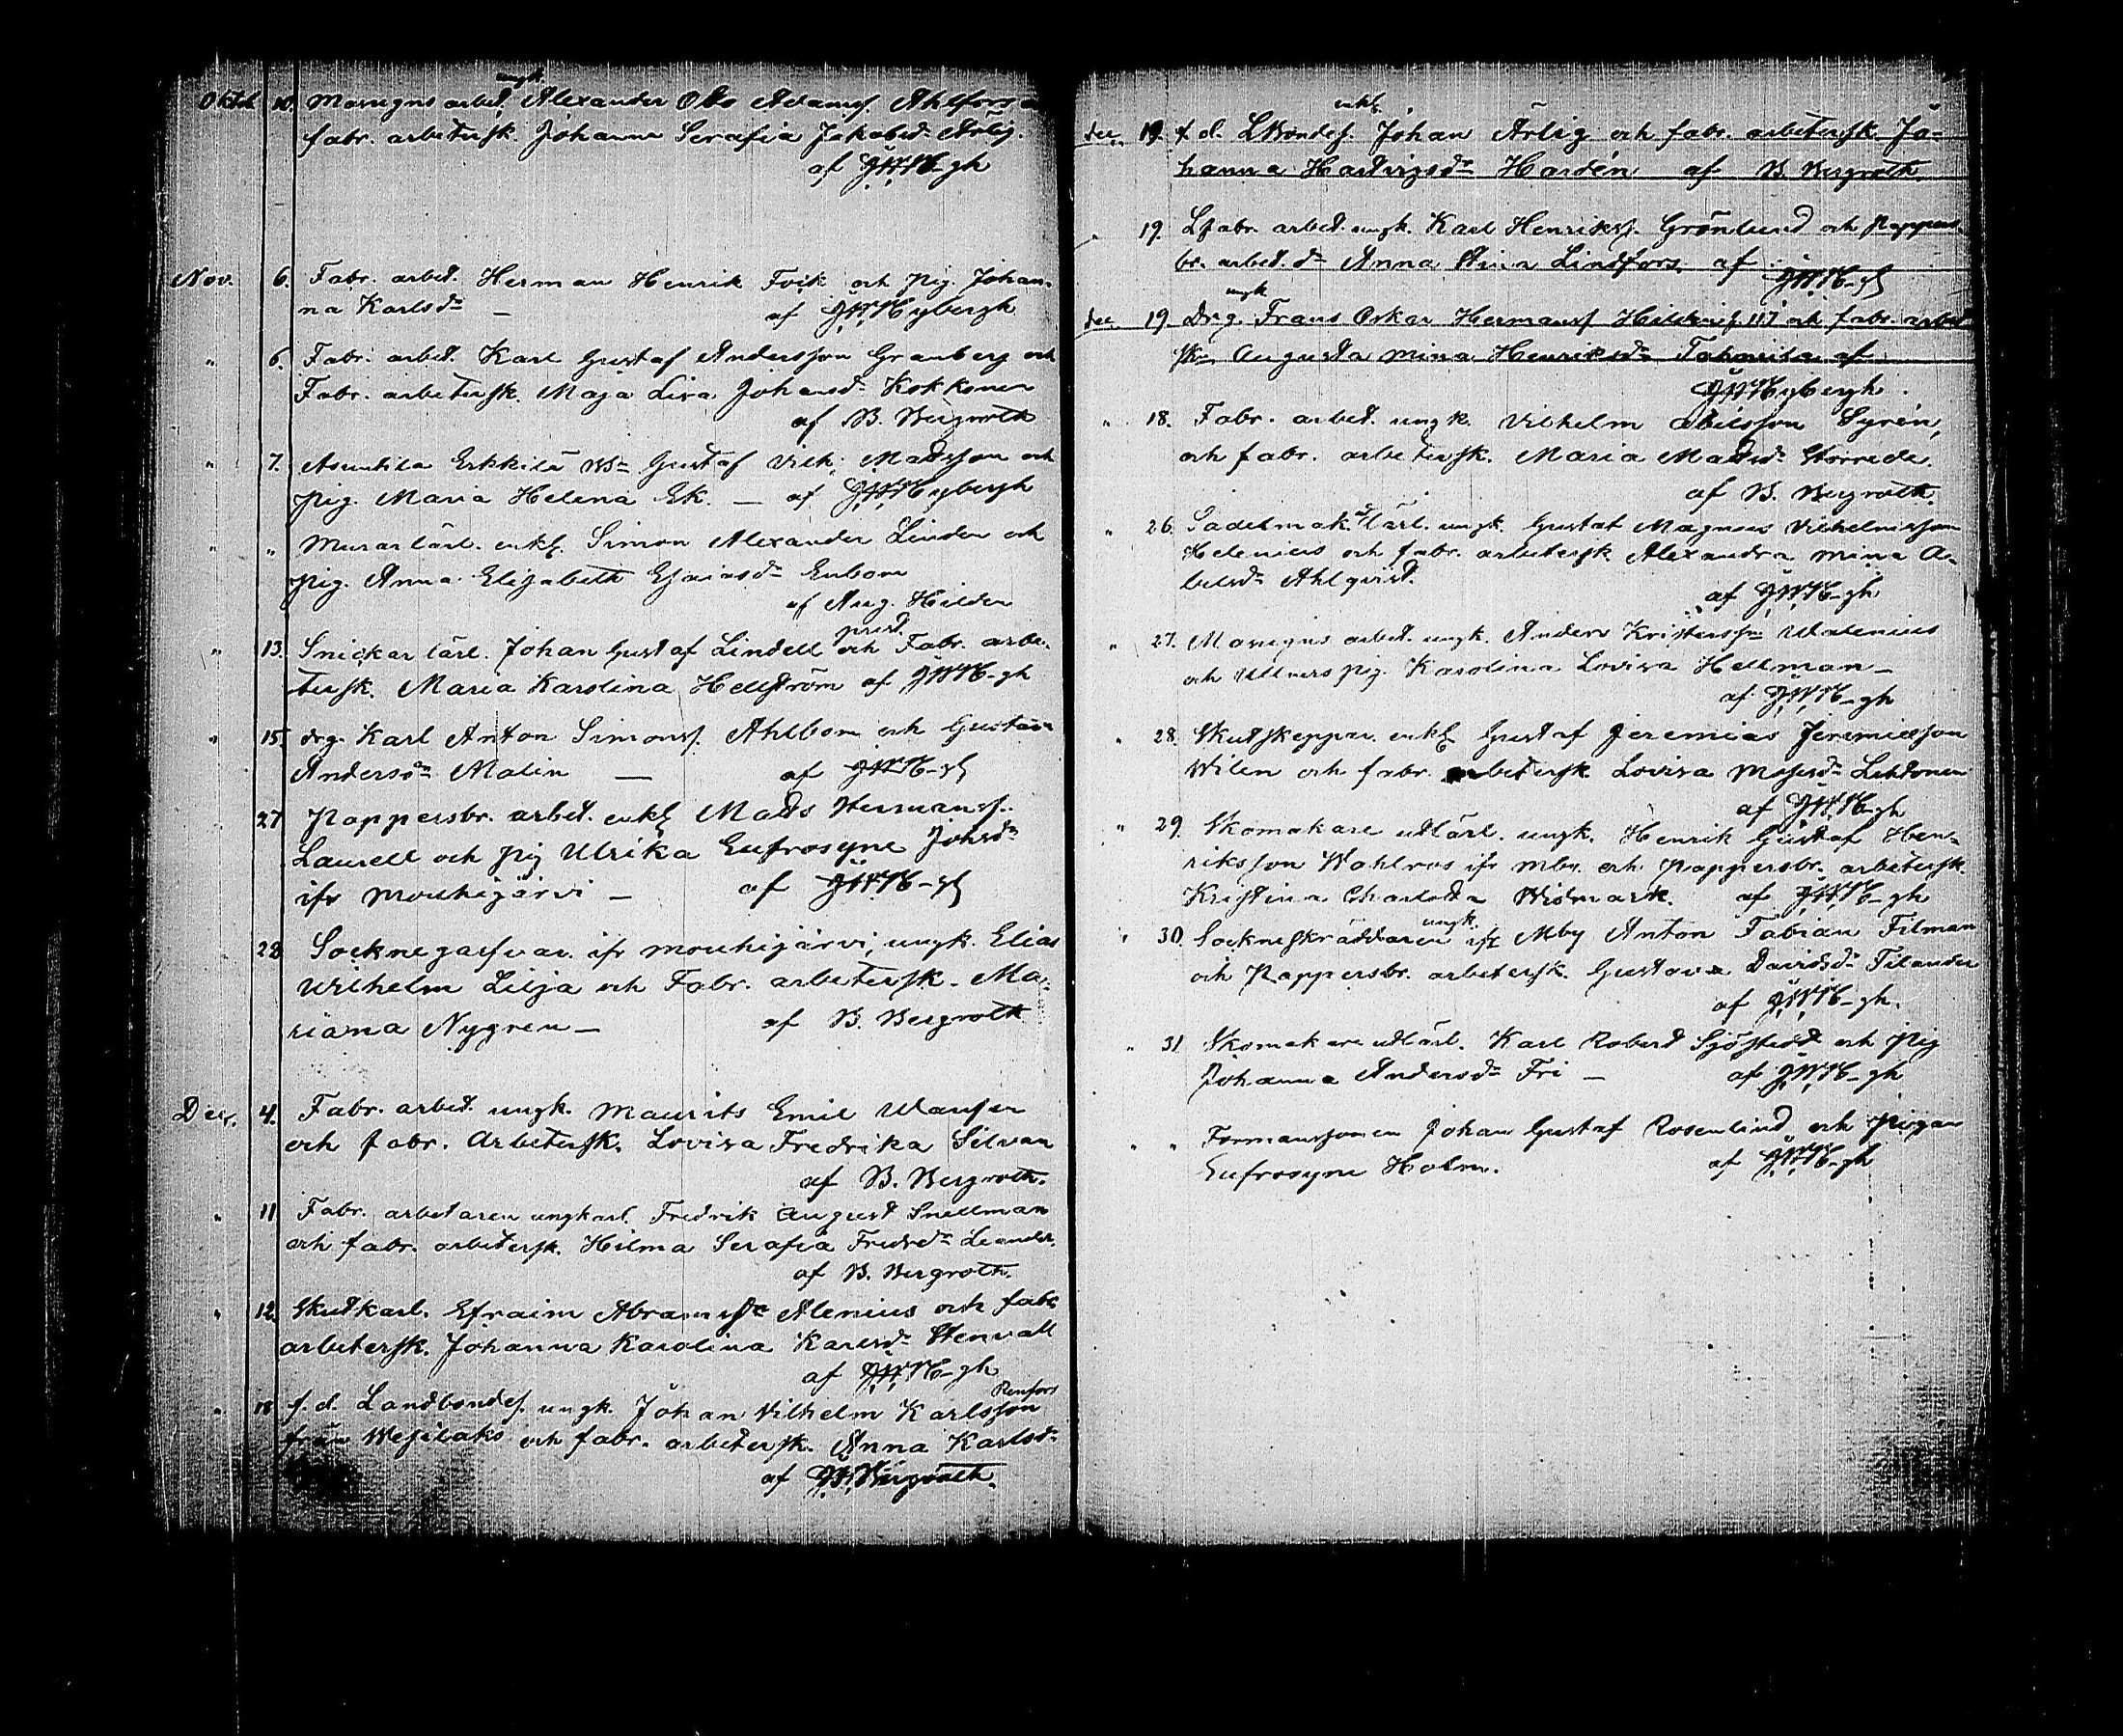 ungk.
Oktob 10. Manegns arbet. Alexander Otto Adamsf. Ahlfors
fabr. arbetersk. Johanna Serafia Jakobsd. Ärlig.
af GWH-gh
Nov. 6. Fabr. arbet. Herman Henrik Fvik och pig. Johan-
na Karlsdr – af GWHybergh
" 6. Fabr. arbet. Karl Gustaf Andersson Granberg och
Fabr. arbetersk. Maja Lisa Johansd. Kokkonen
af B. Bergroth
" 7. Asuntila Erkkilä Gustaf Vilh. Matsson och
pig. Maria Helena Ek. – af GWHybergh
" " Murarlärl. enkl. Simon Alexander Linden och
pig. Anna Elisabeth Esaiasdr Enbom
af Aug. Hilden
prest.
" 13. Snickarlärl. Johan Gustaf Lindell och Fabr. arbe-
tersk. Maria Karolina Hellström af GWH-gh
" 15. drg. Karl Anton Simonsf. Ahlbom och Gustava
Andersdr Malin – af GWH-gh
27 Pappersbr. arbet. enkl Mats Hermansf.
Laurell och pig Ulrika Eufrosyne Johsdr
ifr Mouhijärvi – af GWH-gh
28 Socknegarfvar. ifr Mouhijärvi, ungk. Elias
Wilhelm Lilja och Fabr. arbetersk. Ma-
riana Nygren – af B. Bergroth
Dec. 4. Fabr. arbet. ungk. Maurits Emil
och fabr. arbetersk. Lovisa Fredrika Silvan
af B. Bergroth.
" 11 Fabr. arbetaren ungkarl. Fredrik August Snellman
och fabr. arbetersk. Hilma Serafia Fredrdr Leander.
af B. Bergroth.
" 12. Skutkarl. Efraim Abramsf. Alenius och fabr
arbetersk. Johanna Karolina Karlsdr Stenvall
af GWH-gh
Renfors
" 18 f.d. Landbondes. ungk. Johan Vilhelm Karlsson
från Wesilaks och fabr. arbetersk. Anna Karlsdr
af B. Bergroth.
enkl.
dec. 19. f.d. LBondes. Johan Ärlig och fabr. arbetersk. Jo-
hanna Hartvigsdr Hardén af B. Bergroth.
" 19. Lfabr. arbet. ungk. Karl Henriksf. Grönlund och Pappers-
br. arbet. dr Anna Stina Lindfors. af
GWH-gh
ungk
dec. 19. Drg. Frans Oskar Hermansf och fabr. arbet
sk Augusta Mina Henriksdr af
GWHybergh.
" 18. Fabr. arbet. ungk. Vilhelm Syrén,
och fabr. arbetersk. Maria Matsdr
af B. Bergroth.
" 26. Sadelmak. lärl. ungk. Gustaf Magnus Vilhelmsson
Helenius och fabr. arbetersk Alexandra Mina A-
belsdr Ahlqvist.
af GWH-gh
" 27. Manegns arbet. ungk. Anders Kristerssn Walenius
och pig. Karolina Lovisa Hellman –
af GWH-gh
" 28. Skutskeppar. enkl Gustaf Jeremias Jeremiasson
Wilen och fabr. arbetersk Lovisa Mosesdr Lehtonen
af GWH-gh
" 29. Skomakare utlärl. ungk. Henrik Gustaf Hen-
riksson Wahlros ifr Mby. och Pappersbr. arbetersk.
Kristina Charlotta Widmark. af GWH-gh
ungk.
" 30. Sockneskräddaren ifr Mby Anton Fabian Filman
och Pappersbr. arbetersk. Gustava Davidsdr Tilander
af GWH-gh.
" 31 Skomakare utlärl. Karl Robert Sjöstedt och pig
Johanna Andersdr Fri – af GWH-gh
" " Formanssonen Johan Gustaf Rosenlind och pigan
Eufrosyne Holm. af GWH-gh